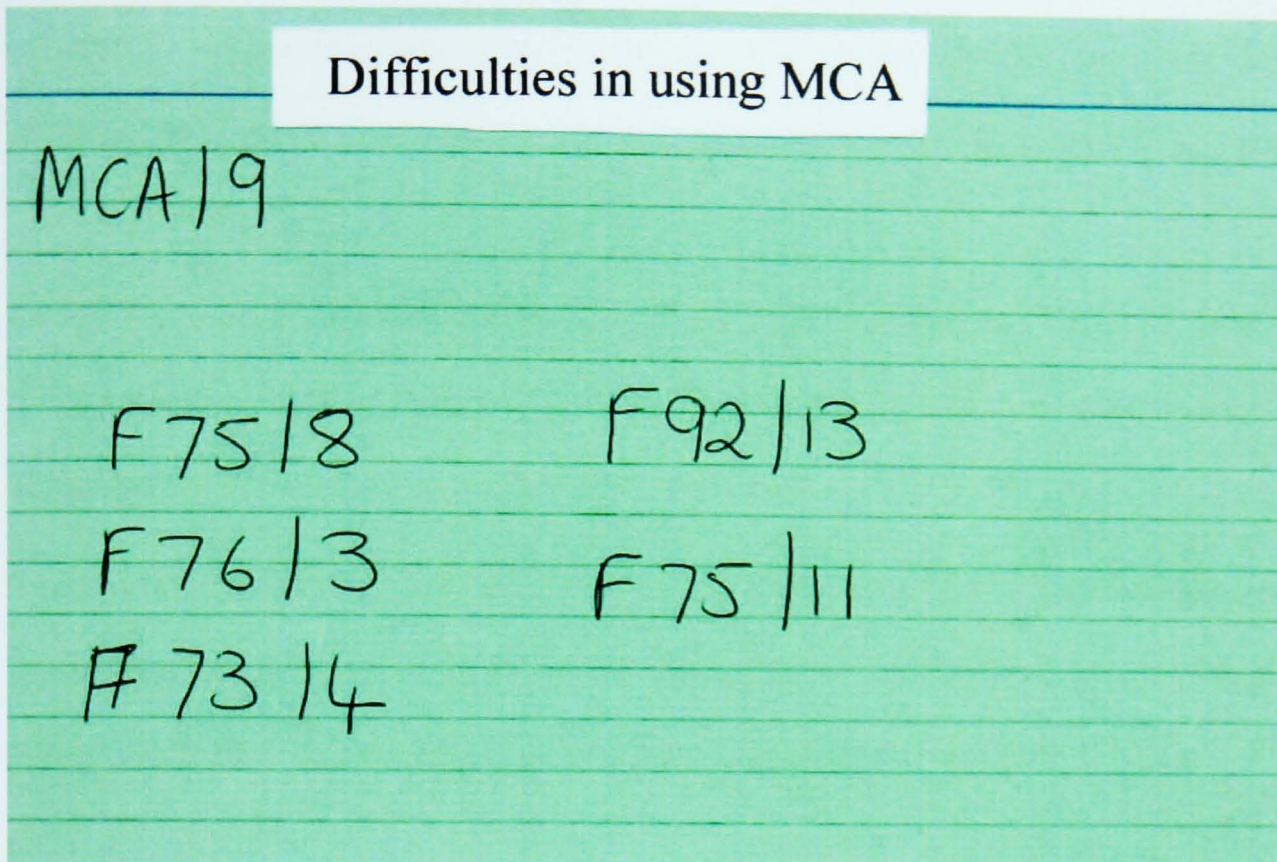 Difficulties in using MCA
MCA/9
F75/8
F76/3
F73/4
F92/13
F75/11